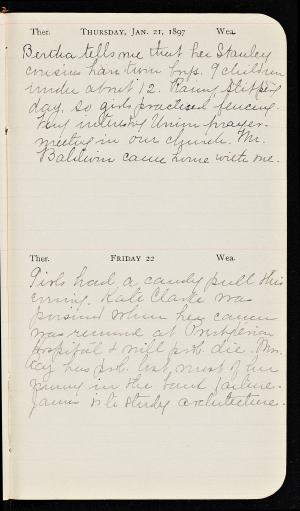 Ther. THURSDAY, JAN. 21, 1897 Wea.
Bertha tells me that her Stanley
cousins have twin boys. 9 children
under about 12. Rainy slippery
day. So girls practiced fencing.
Very interesting Union prayer-
meeting in our church. Mr.
Baldwin came home with me.
Ther. FRIDAY 22 Wea.
Girls had a candy pull this
evening. Kate Clarke was
poisoned when her cancer
was removed at Presbyterian
Hospital & will prob. die. Mrs.
has prob. lost most of her
money in the bank failure.
James to study architecture.